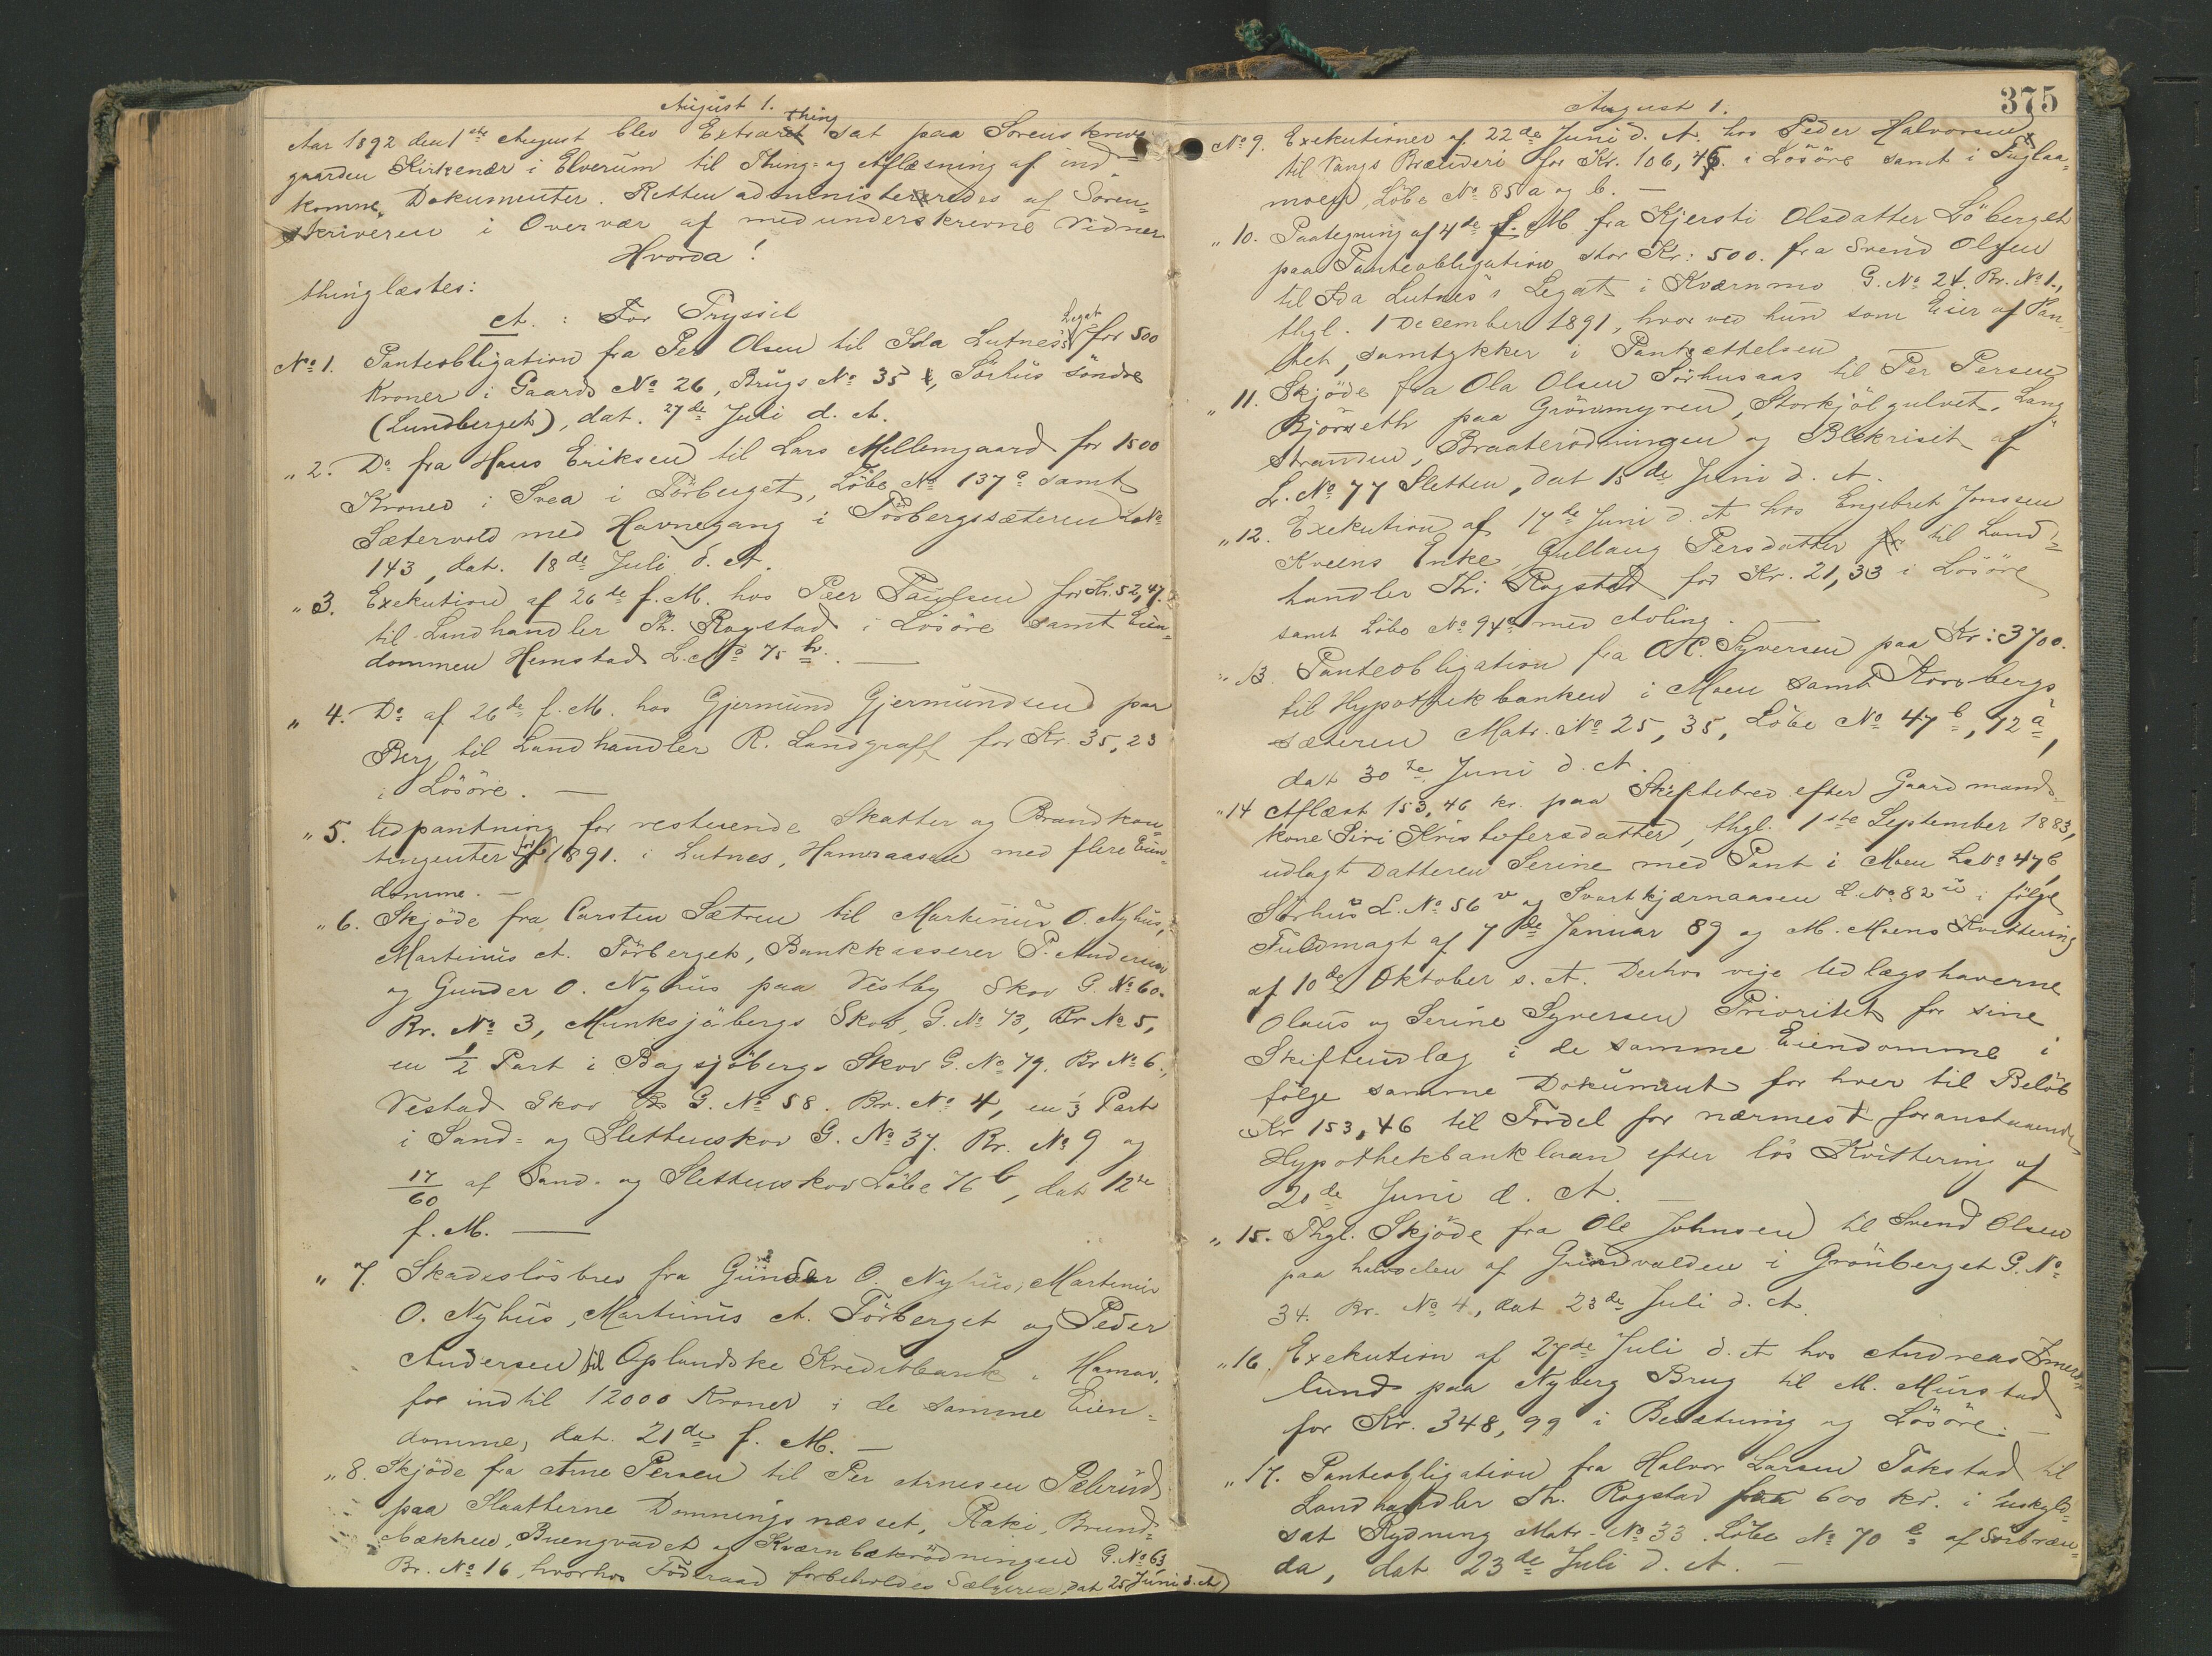 August 1.
Aar 1892 den 1ste August blev Extrathing sat paa Sorenskriver
gaarden Kirkenær i Elverum til Thing- og Aflæsning af ind-
komne Dokumenter. Retten administreredes af Soren-
skriveren i Overvær af medunderskrevne Vidner
Hvorda!
thinglæstes:
A. : For Trysil
No 1. Panteobligation fra Per Olsen til Ida Lutnes's Legat for 500
Kroner i Gaards No 26, Brugs No 35, Sørhus søndre
(Lundberget), dat. 27de Juli d. A.
" 2. Do fra Hans Eriksen til Lars Mellemgaard for 1500
Kroner i Svea i Törberget, Löbe No 137a samt
Sætervold med Havnegang i Törbergssæteren L. No
143, dat. 18de Juli d. A.
" 3. Exekution af 26de f. M. hos Peer Paulsen for Kr. 52,47.
til Landhandler Th. Rogstad i Lösöre samt Eien-
dommen Hemstad L. No 75 h. —
" 4. Do af 26de f. M. hos Gjermund Gjermundsen paa
Berg til Landhandler R. Landgraff for Kr. 35,23
i Lösöre. —
" 5. Udpantning for resterende Skatter og Brandkon-
tingenter for 1891. i Lutnes, med flere Eien-
domme. —
" 6. Skjöde fra Carsten Sætren til Martinius O. Nyhus,
Martinius A. Törberget, Bankkasserer P. Andersen
og Gunder O. Nyhus paa Vestby Skov G. No 60.
Br. No 3, Munksjöbergs Skov, G. No 73, Br No 5,
en 1/2 Part i Bagsjöbergs Skov G. No 79. Br No 6.,
Vestad Skov G. No 58. Br. No 4, en 1/3 Part
i Sand- og Slettenskov G. No 37. Br. No 9 og
17/60 af Sand- og Slettenskov Löbe 76 b, dat 12te
f. M. —
" 7. Skadeslösbrev fra Gunder O. Nyhus, Martinius
O. Nyhus, Martinius A. Törberget og Peder
Andersen til Oplandske Kreditbank i Hamar,
for indtil 12000 Kroner i de samme Eien-
domme, dat. 21de f. M. —
" 8. Skjöde fra Arne Persen til Per Arnesen Pælerud
paa Slaatterne Domningsnæsset, Raki, Brund-
bækken, Buengvadet og Kværnbækrödningen G. No 63
Br. No 16, hvorhos Föderaad forbeholdes Sælgeren, dat 25 Juni d. A.
375
August 1.
No 9. Exekutioner af 22de Juni d. A. hos Peder Halvorsen
til Vangs Brænderi for Kr. 106,45. i Lösöre samt i Fuglaa-
moen, Löbe No 85 a og b. —
" 10. Paategning af 4de f. M. fra Kjersti Olsdatter Löberget
paa Panteobligation stor Kr: 500. fra Svend Olsen
til Ida Lutnes's Legat i Kværnmo G. No 24. Br. No 1.,
thgl. 1 December 1891, hvorved hun som Eier af Pan-
tet, samtykker i Pantsættelsen —
" 11. Skjöde fra Ola Olsen Sörhusaas til Per Persen
Björseth paa Grönmyren, Storkjölgulvet, Lang-
stranden, Braaterödningen og Blekrisit af
L. No 77 Sletten, dat 15de Juni d. A.
" 12. Exekution af 17de Juni d. A hos Engebret Jonssen
Kveens Enke Gullaug Persdatter til Land-
handler Th: Rogstad for Kr. 21,33 i Lösöre
samt Löbe No 94a med Avling. —
" 13. Panteobligation fra O. Syversen paa Kr: 3700.
til Hypothekbanken i Moen samt Korsbergs
sæteren Matr. No 25, 35, Löbe No 47 b, 72 a,
dat 30te Juni d. A.
" 14 Aflæst 153,46 kr. paa Skiftebrev efter Gaardmands-
kone Siri Kristofersdatter, thgl. 1ste September 1883,
udlagt Datteren Serine med Pant i Moen L. No 47 b
Störhus L. No 56 v og Svartkjærnaasen L. No 82 ii i fölge
Fuldmagt af 7de Januar 89 og M. Moens Kvittering
af 10de Oktober s. A. Derhos vige Udlægshaverne
Olaus og Serine Syversen Prioritet for sine
Skifteudlæg i de samme Eiendomme i
fölge samme Dokument for hver til Belöb
Kr 153,46 til Fordel for nærmest foranstaaende
Hypothekbanklaan efter lös Kvittering af
20de Juni d. A. —
" 15. Thgl. Skjöde fra Ole Johnsen til Svend Olsen
paa halvdelen af Grindvolden i Grönberget G. No
34. Br. No 4, dat 23de Juli d. A.
" 16. Exekution af 27de Juli d. A hos Andreas
lund paa Nyberg Brug til M. Mürstad
for Kr. 348,99 i Besætning og Lösöre. —
" 17. Panteobligation fra Halvor Larsen Takstad til
Landhandler Th. Rogstad paa 600 kr. i Uskyld-
sat Rydning Matr. No 33. Löbe No 70 e af Sörbræn-
da, dat 23de Juli d. A. —